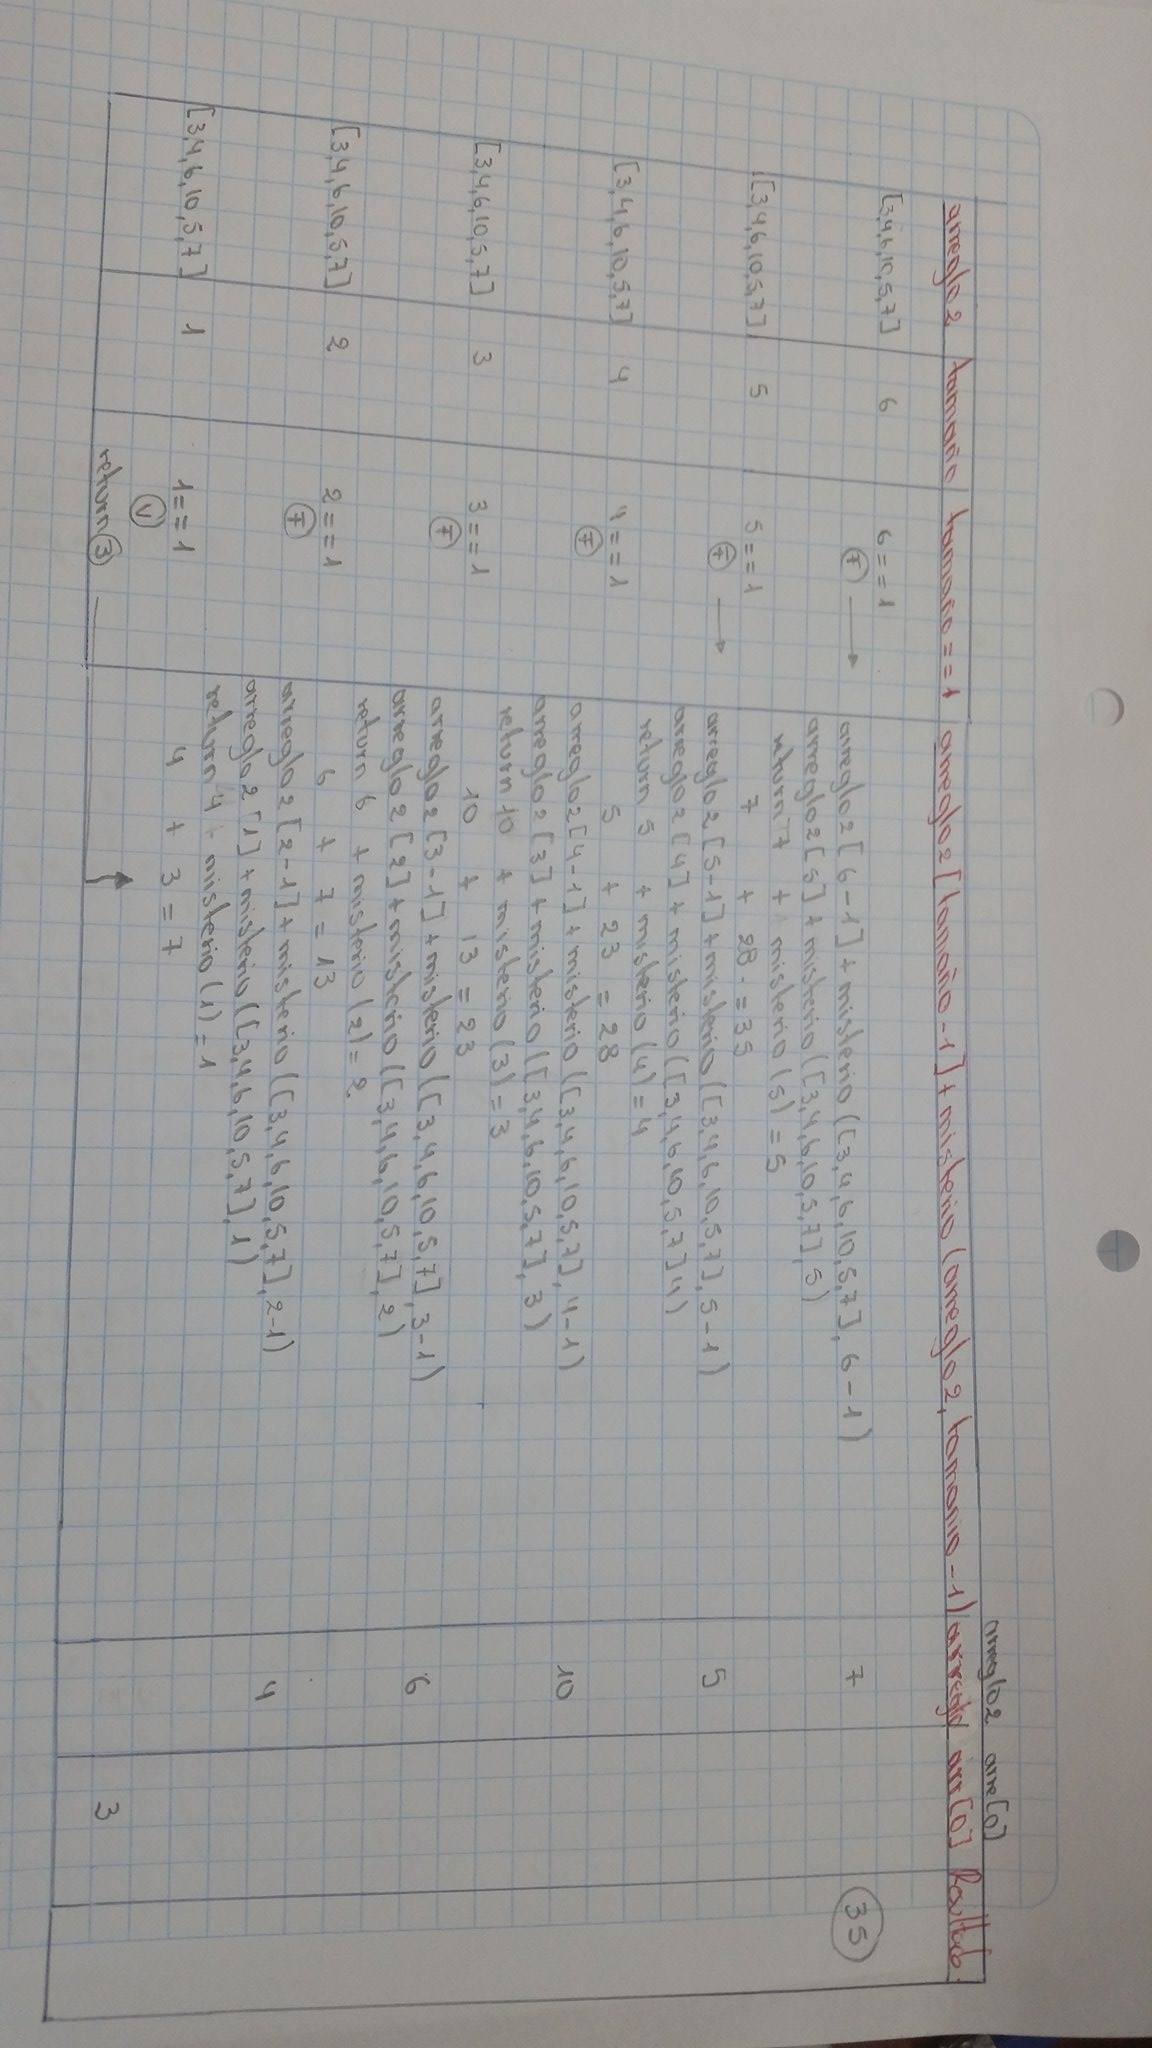 arreglo2 arre[0]
arreglo2 tamaño tamaño==1 arreglo2[tamaño-1]+misterio(arreglo2,tamanio-1) arreglo arr[0] Resultado.
[3,4,6,10,5,7] 6 6==1 arreglo2[6-1]+misterio([3,4,6,10,5,7],6-1) 7 35
F arreglo2[5]+misterio([3,4,6,10,5,7],5)
return 7 + misterio(5)=5
7 + 28 = 35
[3,4,6,10,5,7] 5 5==1 arreglo2[5-1]+misterio([3,4,6,10,5,7],5-1) 5
F arreglo2[4]+misterio([3,4,6,10,5,7]4)
return 5 + misterio(4)=4
5 + 23 = 28
[3,4,6,10,5,7] 4 4==1 arreglo2[4-1]+misterio([3,4,6,10,5,7],4-1) 10
F arreglo2[3]+misterio([3,4,6,10,5,7],3)
return 10 + misterio(3)=3
10 + 13 = 23
[3,4,6,10,5,7] 3 3==1 arreglo2[3-1]+misterio([3,4,6,10,5,7],3-1) 6
F arreglo2[2]+misterio([3,4,6,10,5,7],2)
return 6 + misterio(2)=2
6 + 7 = 13
[3,4,6,10,5,7] 2 2==1 arreglo2[2-1]+misterio([3,4,6,10,5,7],2-1) 4
F arreglo2[1]+misterio([3,4,6,10,5,7],1)
return 4 + misterio(1)=1
4 + 3 = 7
[3,4,6,10,5,7] 1 1==1
V
return 3 3